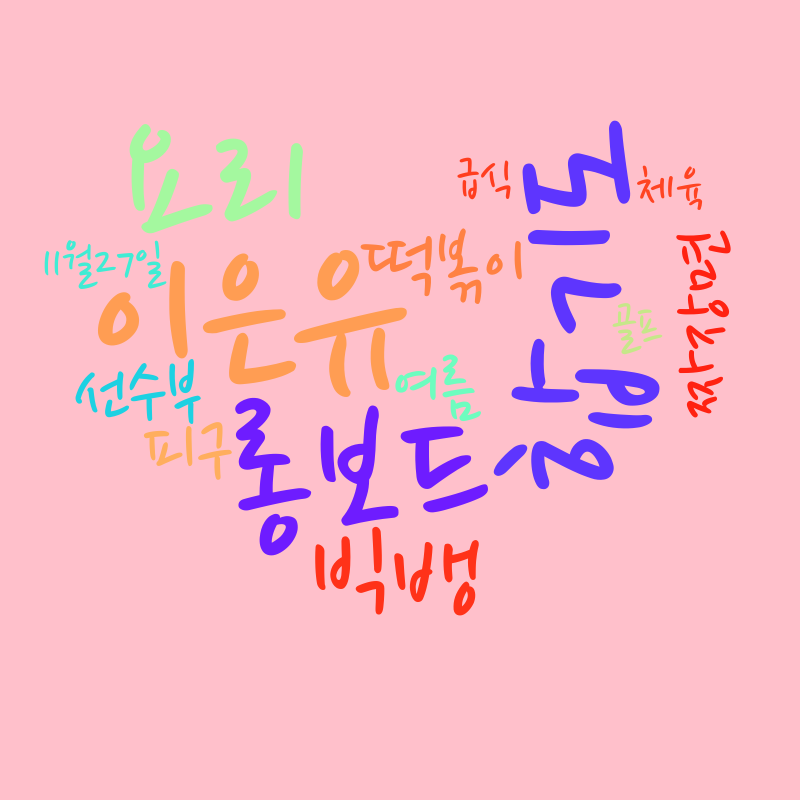 요리
급식
체육
11월27일
이은유
떡볶이
짜장면
골프
선수부
여름
피구
롱보드
빅뱅